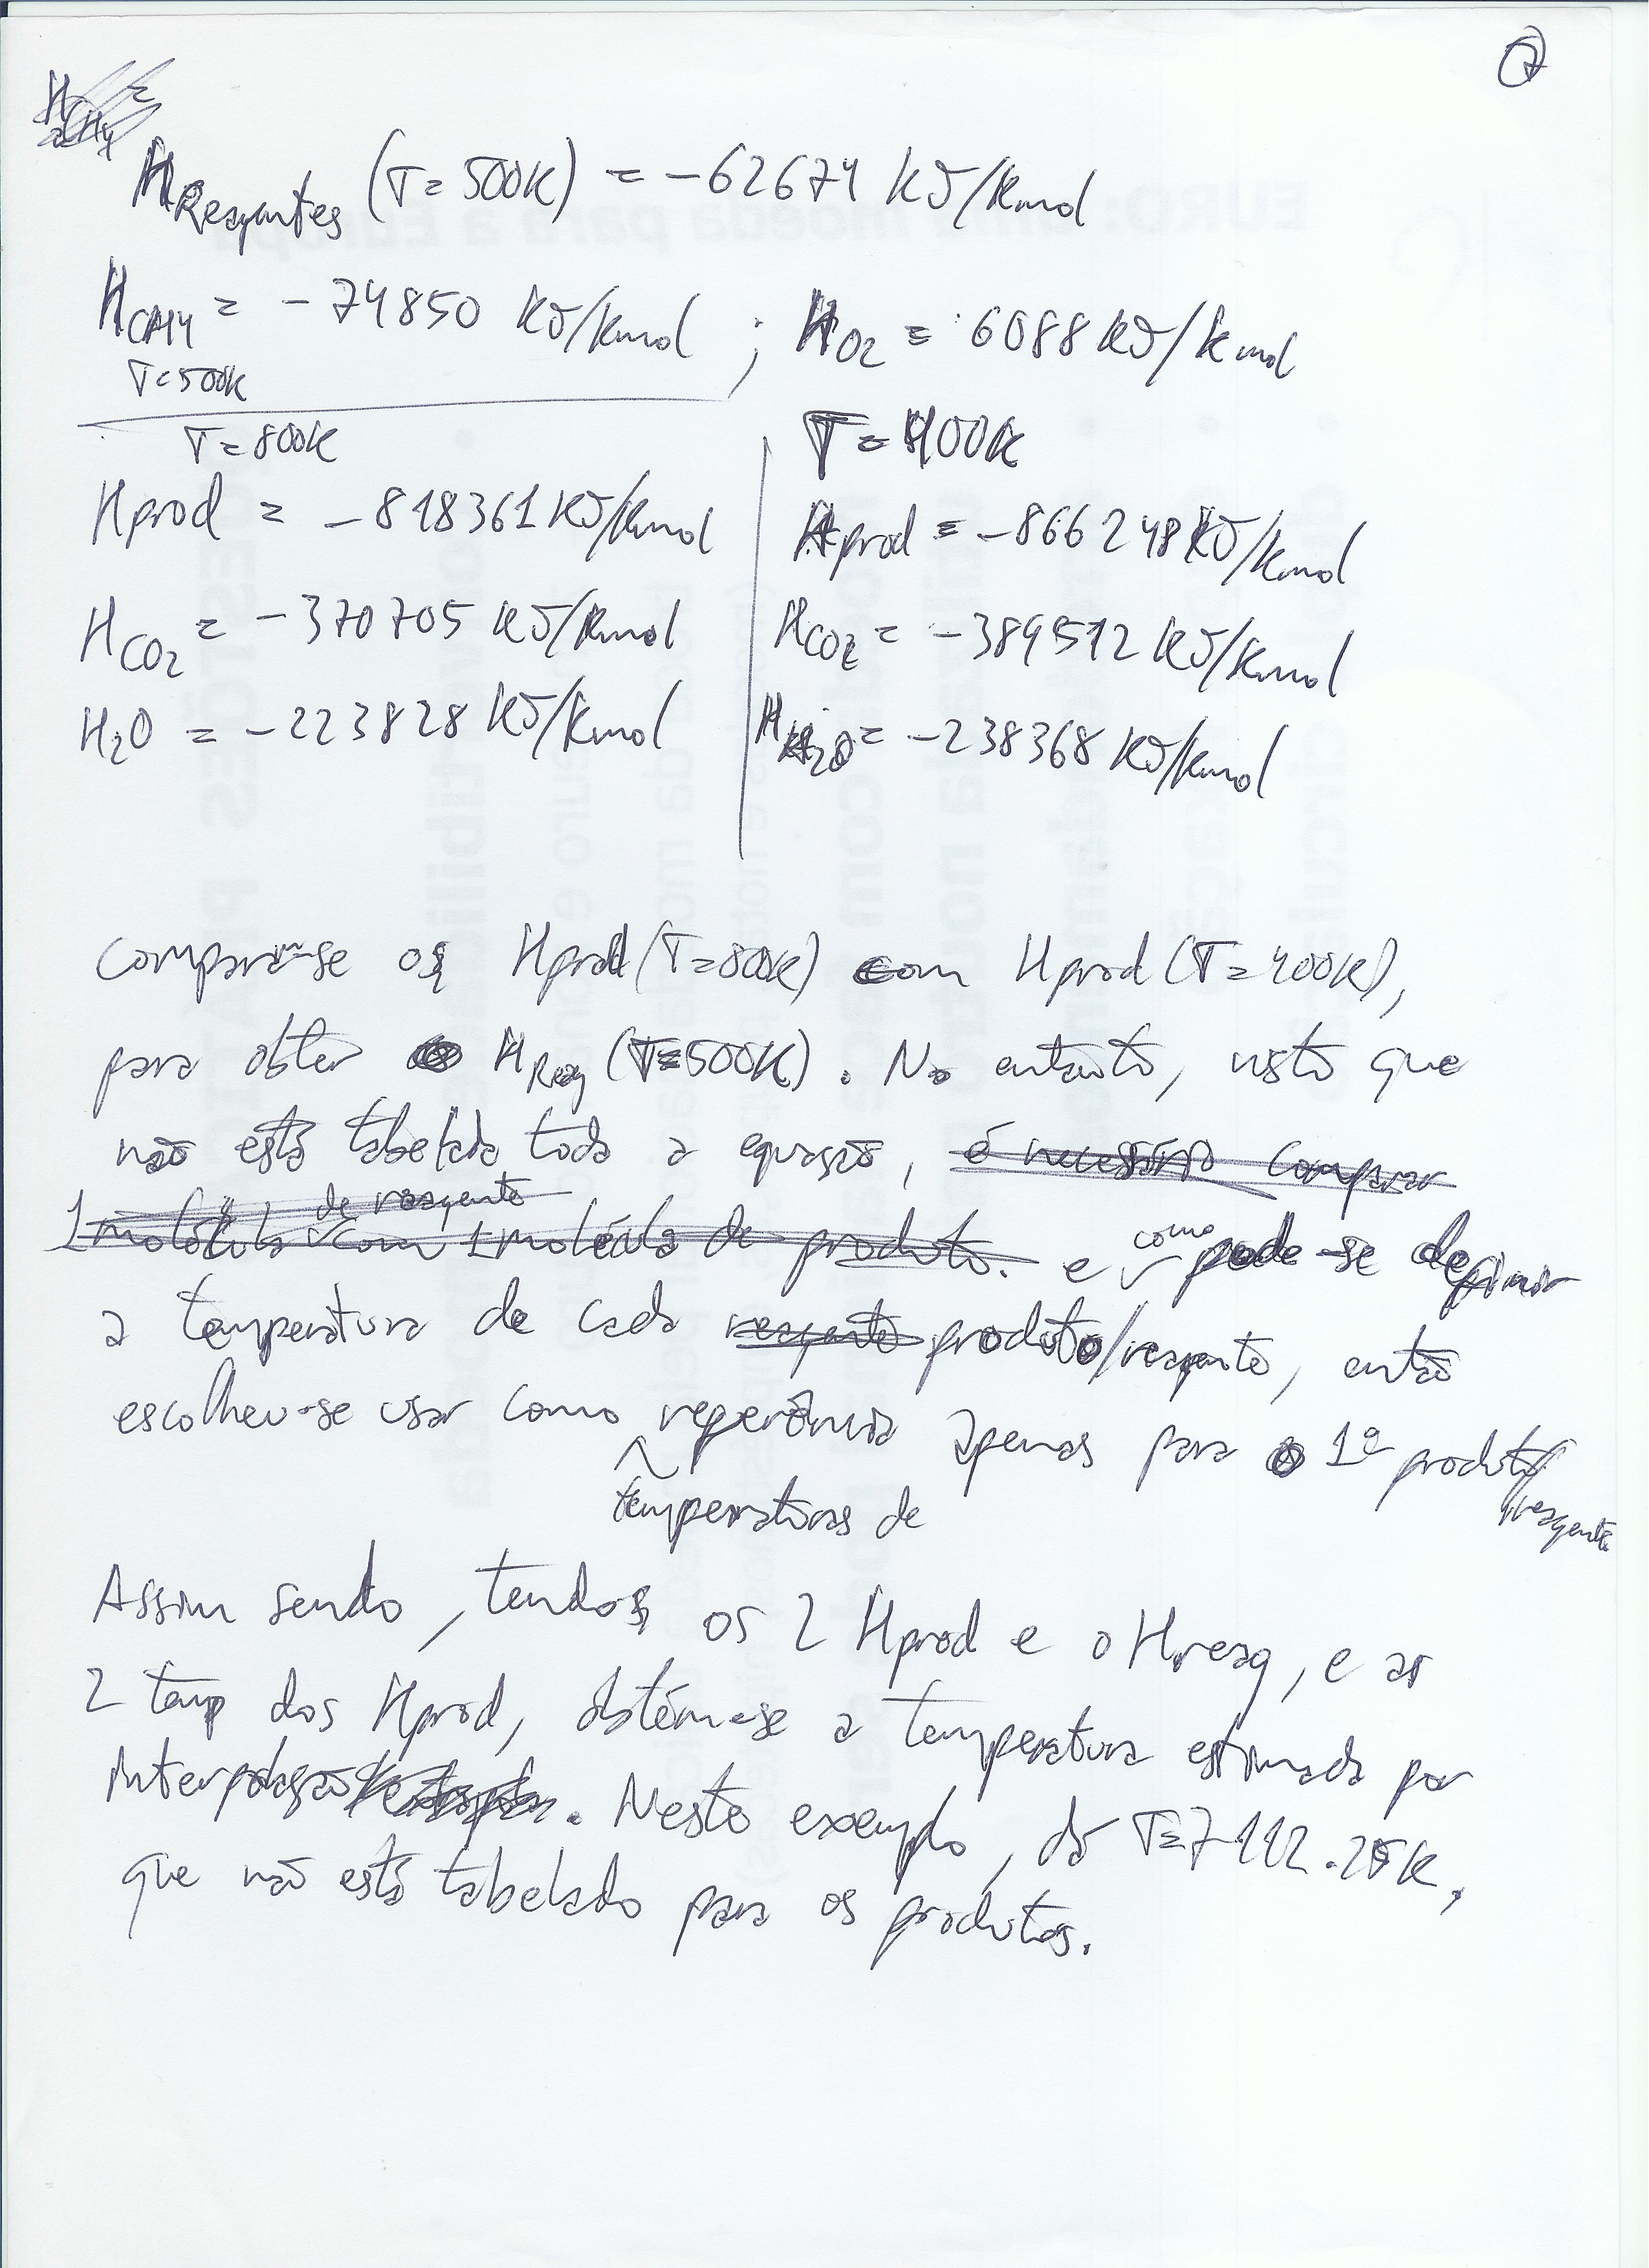 7
H Reagentes (T=500K) = -62674 KJ/Kmol
H CH4 = - 74850 KJ/Kmol ; H O2 = 6088 KJ/Kmol
T=500K
T=800K T=400K
Hprod = -818361 KJ/Kmol Hprod = -866248 KJ/Kmol
H CO2 = -370705 KJ/Kmol H CO2 = -389512 KJ/Kmol
H2O = -223828 KJ/Kmol H H2O = -238368 KJ/Kmol
Compara-se os Hprod (T=800K) com Hprod (T=400K),
para obter H Reag (T=500K). No entanto, visto que
não está tabelada toda a equação, é necessário comparar
1 molécula de reagente com 1 molécula de produto. e como pode-se definir
a temperatura de cada reagente produto/reagente, então
escolheu-se usar como referência apenas para o 1º produto/
reagente
temperaturas de
Assim sendo, tendos os 2 Hprod e o Hreag, e as
2 temp dos Hprod, obtém-se a temperatura estimada por
interpolação. Neste exemplo, dá T=7112.25K,
que não está tabelado para os produtos.